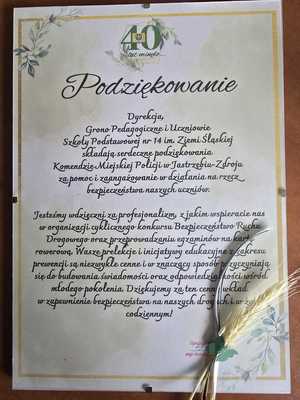 40
lat minęło...
Podziękowanie
Dyrekcja,
Grono Pedagogiczne i Uczniowie
Szkoły Podstawowej nr 14 im. Ziemi Śląskiej
składają serdeczne podziękowania
Komendzie Miejskiej Policji w Jastrzębiu-Zdroju
za pomoc i zaangażowanie w działania na rzecz
bezpieczeństwa naszych uczniów.
Jesteśmy wdzięczni za profesjonalizm, z jakim wspieracie nas
w organizacji cyklicznego konkursu Bezpieczeństwo Ruchu
Drogowego oraz przeprowadzaniu egzaminów na kartę
rowerową. Wasze prelekcje i inicjatywy edukacyjne z zakresu
prewencji są niezwykle cenne i w znaczący sposób przyczyniają
się do budowania świadomości oraz odpowiedzialności wśród
młodego pokolenia. Dziękujemy za ten cenny wkład
w zapewnienie bezpieczeństwa na naszych drogach i w
codziennym!